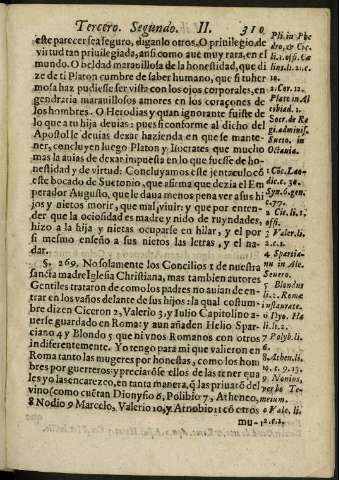 Tercero. Segundo. II. 310
este parecer sea seguro, diganlo otros. O priuilegio, de
virtud tan priuilegiada, ansi como aue muy rara, en el
mundo. O beldad marauillosa de la honestidad, que di
ze de ti Platon cumbre de saber humano, que si tu her
mosa haz pudiesse ser vista con los ojos corporales, en
gendraria marauillosos amores en los coraçones de
los hombres. O Herodias y quan ignorante fuiste de
lo que a tu hija deuias: pues si conforme al dicho del
Apostol le deuias dexar hazienda en que se mante-
ner, concluyen luego Platon y Isocrates que mucho
mas la auias de dexar impuesta en lo que fuesse de ho-
nestidad y de virtud: Concluyamos este
este bocado de Suetonio, que afirma que dezia el Em
perador Augusto, que le daua menos pena ver a sus hi
jos y nietos morir, que mal, viuir: y que por enten-
der que la ociosidad es madre y nido de ruyndades,
hizo a la hija y nietas ocuparse en hilar, y el por
si mesmo enseño a sus nietos las letras, y el na-
dar.
§. 269. No solamente los Concilios 1 de nuestra
sancta madre Iglesia Christiana, mas tambien autores
Gentiles trataron de como los padres no auian de en-
trar en los vaños delante de sus hijos: la qual costum-
bre dizen Ciceron 2, Valerio 3, y Iulio Capitolino a-
uerse guardado en Roma: y aun añaden Helio Spar-
ciano 4 y Blondo 5 que ni vnos Romanos con otros
indiferentemente. Yo tengo para mi que valieron en
Roma tanto las mugeres por honestas, como los hom
bres por guerreros: y preciarõse ellos de las tener qua
les yo las encarezco, en tanta manera, q̃ las priuarõ del
vino (como cuẽtan Dionysio 6, Polibio 7, Atheneo,
8 Nonio 9 Marcelo, Valerio 10, y Arnobio 11 cõ otros
mu-
Pli. in Phe
dro, & Cic.
li. 1. offi. Ca
lius. li. 2. c.
10.
2. Cor. 12.
Plato in Al
cibiad. 2.
Socr. de Re
gi. administ.
Sueto. in
Octauia.
1 Côc. Lao-
dic. c. 30.
Syn. 6. gen.
c. 77.
2 Cic. li. 1.
offi.
3 Valer. li.
2. c. 1.
4 Spartia-
nu in Ale.
Seuero.
5 Blondus
li. 2. Romæ
instaurate.
6 Diy. Ha
li. li. 2.
7 Polyb. li.
6.
8. Athen. li.
10. c. 9. 13.
9 Nonius,
verbo Te-
metum.
10 Vale. li.
2. c. 1.